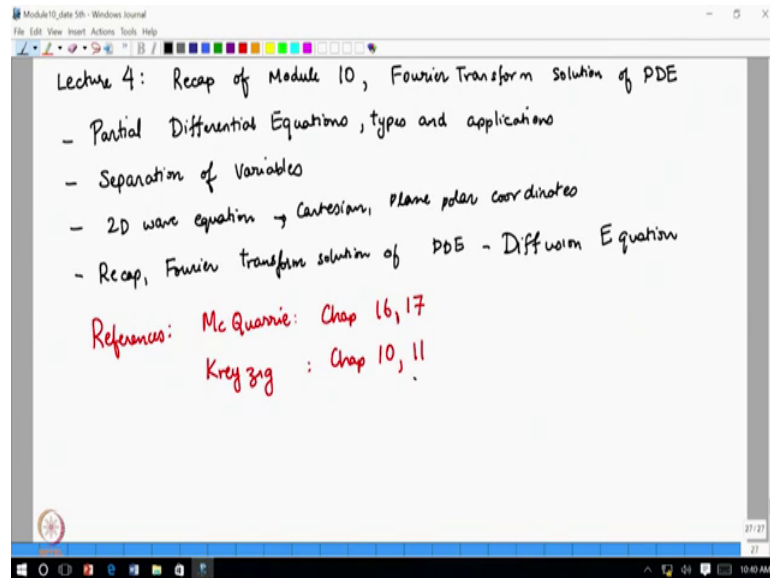 Module10_date 5th - Windows Journal
File Edit View Insert Actions Tools Help
Lecture 4: Recap of Module 10, Fourier Transform Solution of PDE
- Partial Differential Equations, types and applications
- Separation of Variables
- 2D wave equation → Cartesian, Plane polar coordinates
- Recap, Fourier transform solution of PDE - Diffusion Equation
References: McQuarrie: Chap 16, 17
Kreyzig : Chap 10, 11
27/27
27
10:40 AM